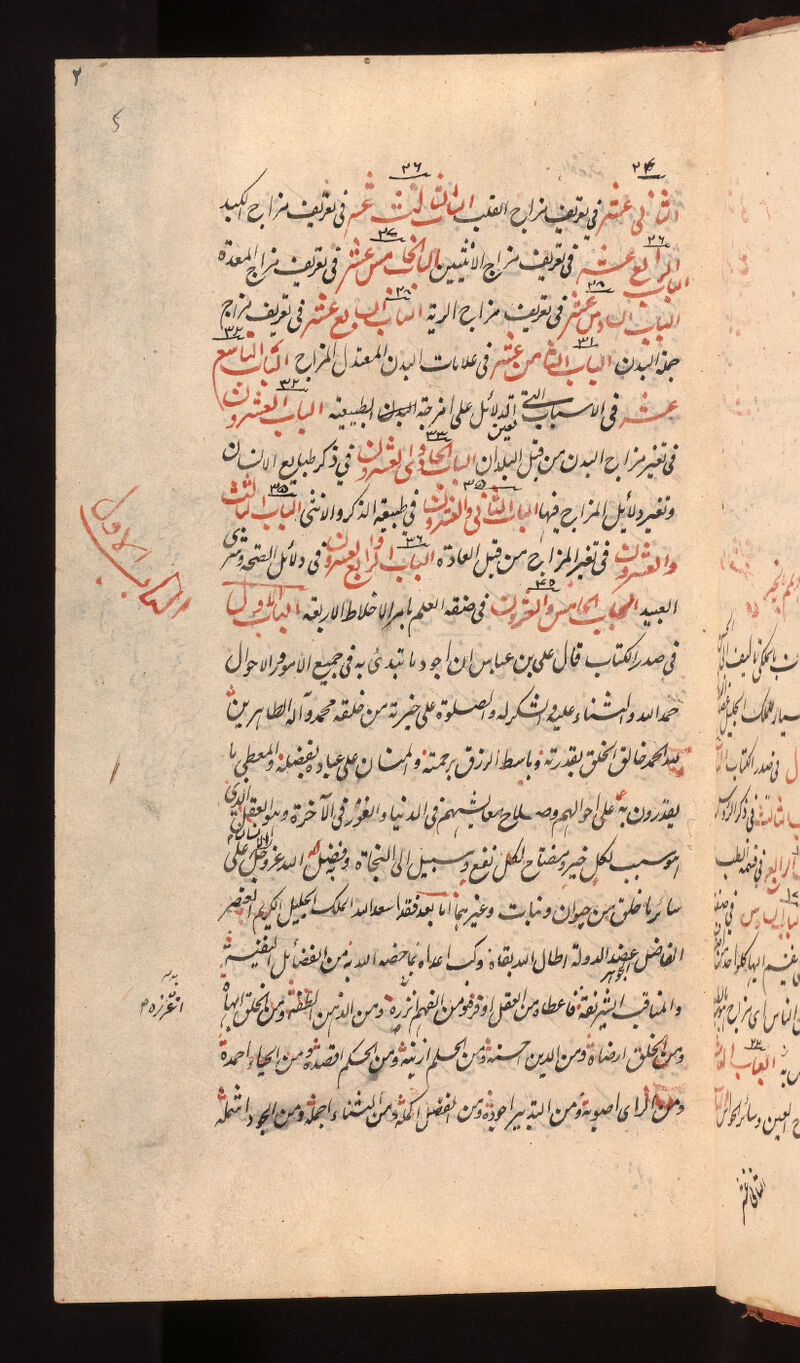 ٢
٢٤ ٢٦
الثانى عشر فى تعريف مزاج القلب الباب الثالث عشر فى تعريف مزاج الكبد
٢٦ ٢٧
الباب الرابع عشر فى تعريف مزاج الانثيين الباب الخامس عشر فى تعريف مزاج المعدة
٢٨ ٢٨
الباب السادس عشر فى تعريف مزاج الرية الباب السابع عشر فى تعريف مزاج
٣١ ٣٢
جملة البدن الباب الثامن عشر فى علامات البدن المعتدل المزاج الباب التاسع
٣٢
عشر فى الاسباب التى تغير الدلائل على امزجة البدن الطبيعية الباب العشرون
٣٣
فى تغير مزاج البدن من قبل البلدان الباب الحادى والعشرون فى ذكر طبايع الانسان
٣٥ ٣٥
وتغير دلايل المزاج فيها الباب الثانى والعشرون فى طبيعة الذكر والانثى الباب الثالث
٣٦
والعشرون فى تغير المزاج من قبل العادة الباب الرابع والعشرون فى دلائل الصحة وشرى
٤٥
العبيد الباب الخامس والعشرون فى صفة العلم بامر الاخلاط الاربعة الباب الاول
فى صدر الكتاب قال على بن عباس ان اجود ما تبتدئ به فى جميع الامور والاحوال
حمد الله والثناء عليه والشكر له والصلوة على خيرته من خلقه محمد وآله الطاهرين
الحمد خالق الخلق بقدرته وباسط الرزق برحمته والمنان على عباده بفضله والمعطى ما
يقدرون به على احوالهم وصلاح معايشهم فى الدنيا والفوز فى الآخرة وهو العقل الذى
هو سبب لكل خير ومفتاح لكل نفع وسبيل الى النجاة وفضل الله عز وجل على
الانسان
سائر ما خلق من حيوان ونبات وغيرهما اما بعد فقد اسعد الله الملك الجليل الكريم العنصر
الفاضل الجوهر عضد الدولة اطال الله بقاه وكبت اعداه بما خصه الله به من الفضائل النفيسة
والمناقب الشريفة فاعطاه من العقل اوفره ومن الفهم اغزره ومن الذهن الطفه ومن الخلق ابهاه
ومن الخلق ارضاه ومن الدين احسنه ومن الحلم ازينه ومن الحكم اقصده ومن الحياء احمده
ومن الراى اصوبه ومن التدبير اجوده ومن الفضل اكمله ومن الثناء اجمله ومن الجود اشمله
الباب الاول